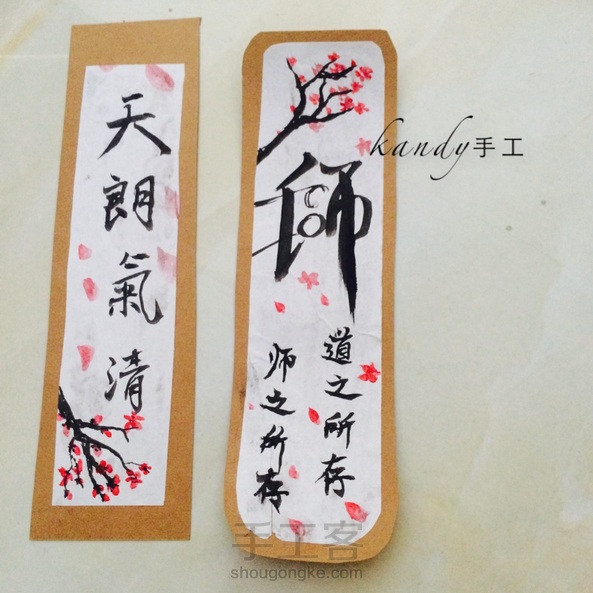 天朗氣清
師
道之所存
师之所存
kandy手工
手工客
shougongke.com